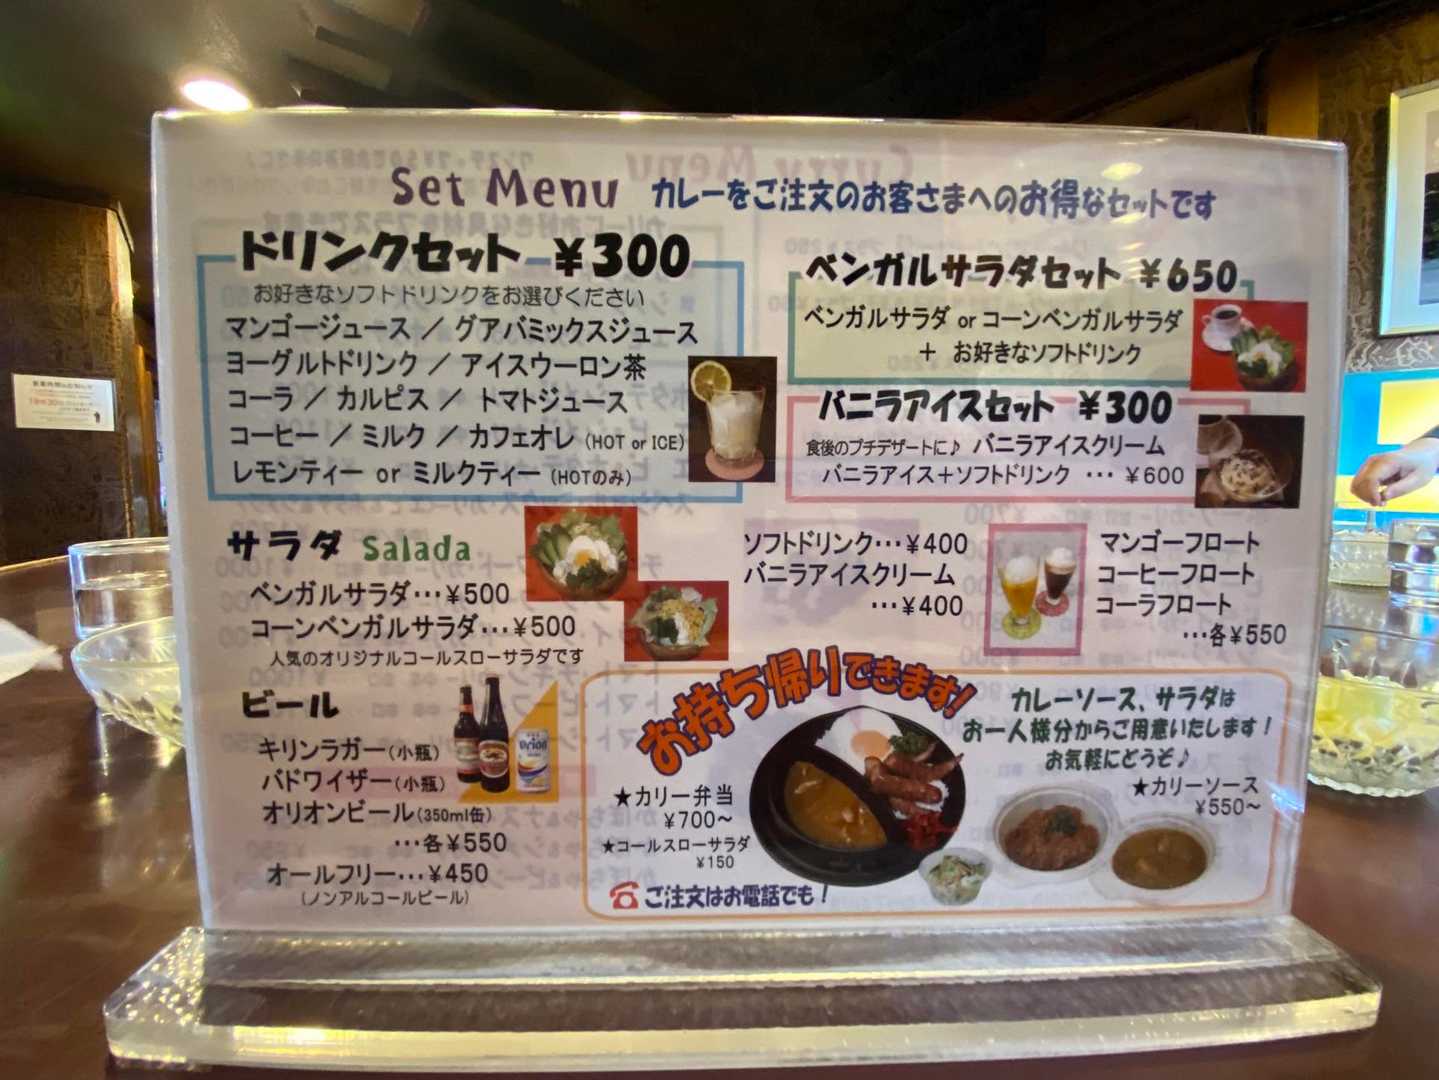 Set Menu カレーをご注文のお客さまへのお得なセットです
ドリンクセット ¥300
お好きなソフトドリンクをお選びください
マンゴージュース ／ グアバミックスジュース
ヨーグルトドリンク ／ アイスウーロン茶
コーラ ／ カルピス ／ トマトジュース
コーヒー ／ ミルク ／ カフェオレ (HOT or ICE)
レモンティー or ミルクティー (HOTのみ)
ベンガルサラダセット ¥650
ベンガルサラダ or コーンベンガルサラダ
＋ お好きなソフトドリンク
バニラアイスセット ¥300
食後のプチデザートに♪ バニラアイスクリーム
バニラアイス＋ソフトドリンク … ¥600
サラダ Salada
ベンガルサラダ…¥500
コーンベンガルサラダ…¥500
人気のオリジナルコールスローサラダです
ソフトドリンク…¥400
バニラアイスクリーム
…¥400
マンゴーフロート
コーヒーフロート
コーラフロート
…各¥550
ビール
キリンラガー(小瓶)
バドワイザー(小瓶)
オリオンビール(350ml缶)
…各¥550
オールフリー…¥450
(ノンアルコールビール)
Orion
お持ち帰りできます!
カレーソース、サラダは
お一人様分からご用意いたします!
お気軽にどうぞ♪
★カリー弁当
¥700～
★コールスローサラダ
¥150
★カリーソース
¥550～
☎ご注文はお電話でも!